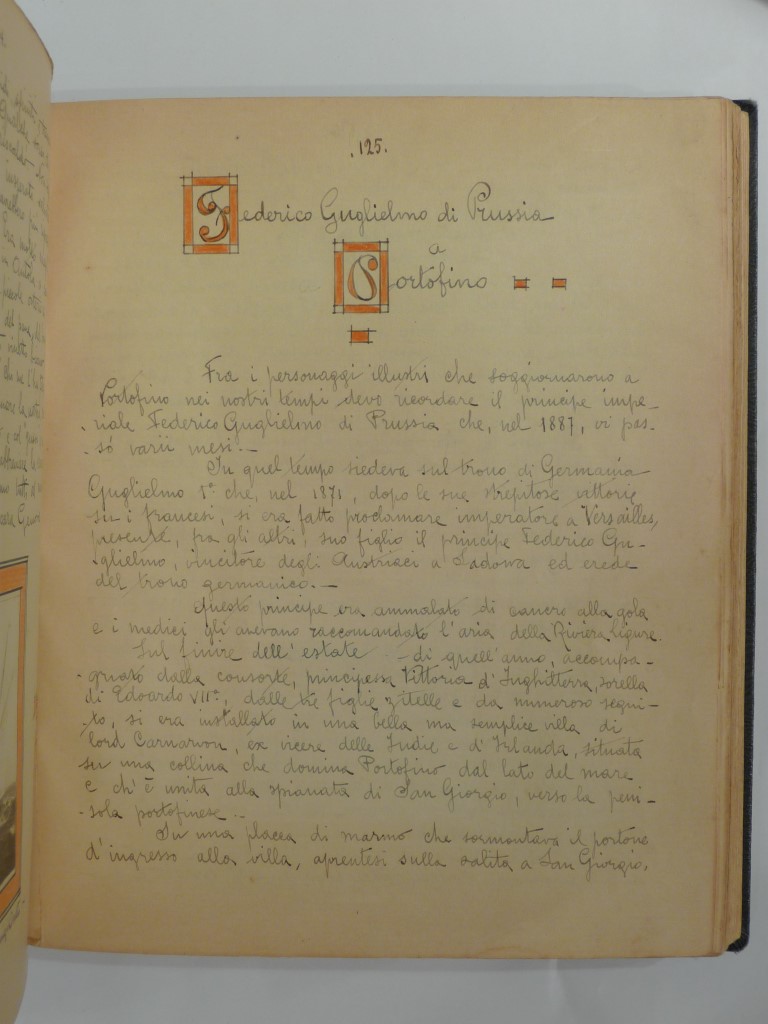 .125.
Federico Guglielmo di Prussia
a
Portofino
Fra i personaggi illustri che soggiornarono a
Portofino nei nostri tempi devo ricordare il principe impe-
riale Federico Guglielmo di Prussia che, nel 1887, vi pas-
sò varii mesi.—
In quel tempo siedeva sul trono di Germania
Guglielmo 1° che, nel 1871, dopo le sue strepitose vittorie
su i francesi, si era fatto proclamare imperatore a Versailles,
presente, fra gli altri, suo figlio il principe Federico Gu-
glielmo, vincitore degli Austriaci a Sadowa ed erede
del trono germanico.—
Questo principe era ammalato di cancro alla gola
e i medici gli avevano raccomandato l'aria della Riviera Ligure.
Sul finire dell'estate di quell'anno, accompa-
gnato dalla consorte, principessa Vittoria d'Inghilterra, sorella
di Edoardo VII°, dalle tre figlie zitelle e da numeroso segui-
to, si era installato in una bella ma semplice villa di
lord Carnarvon, ex vicere delle Indie e d'Irlanda, situata
su una collina che domina Portofino dal lato del mare
e ch'è unita alla spianata di San Giorgio, verso la peni-
sola portofinese.—
Su una placca di marmo che sormontava il portone
d'ingresso alla villa, aprentesi sulla salita a San Giorgio,